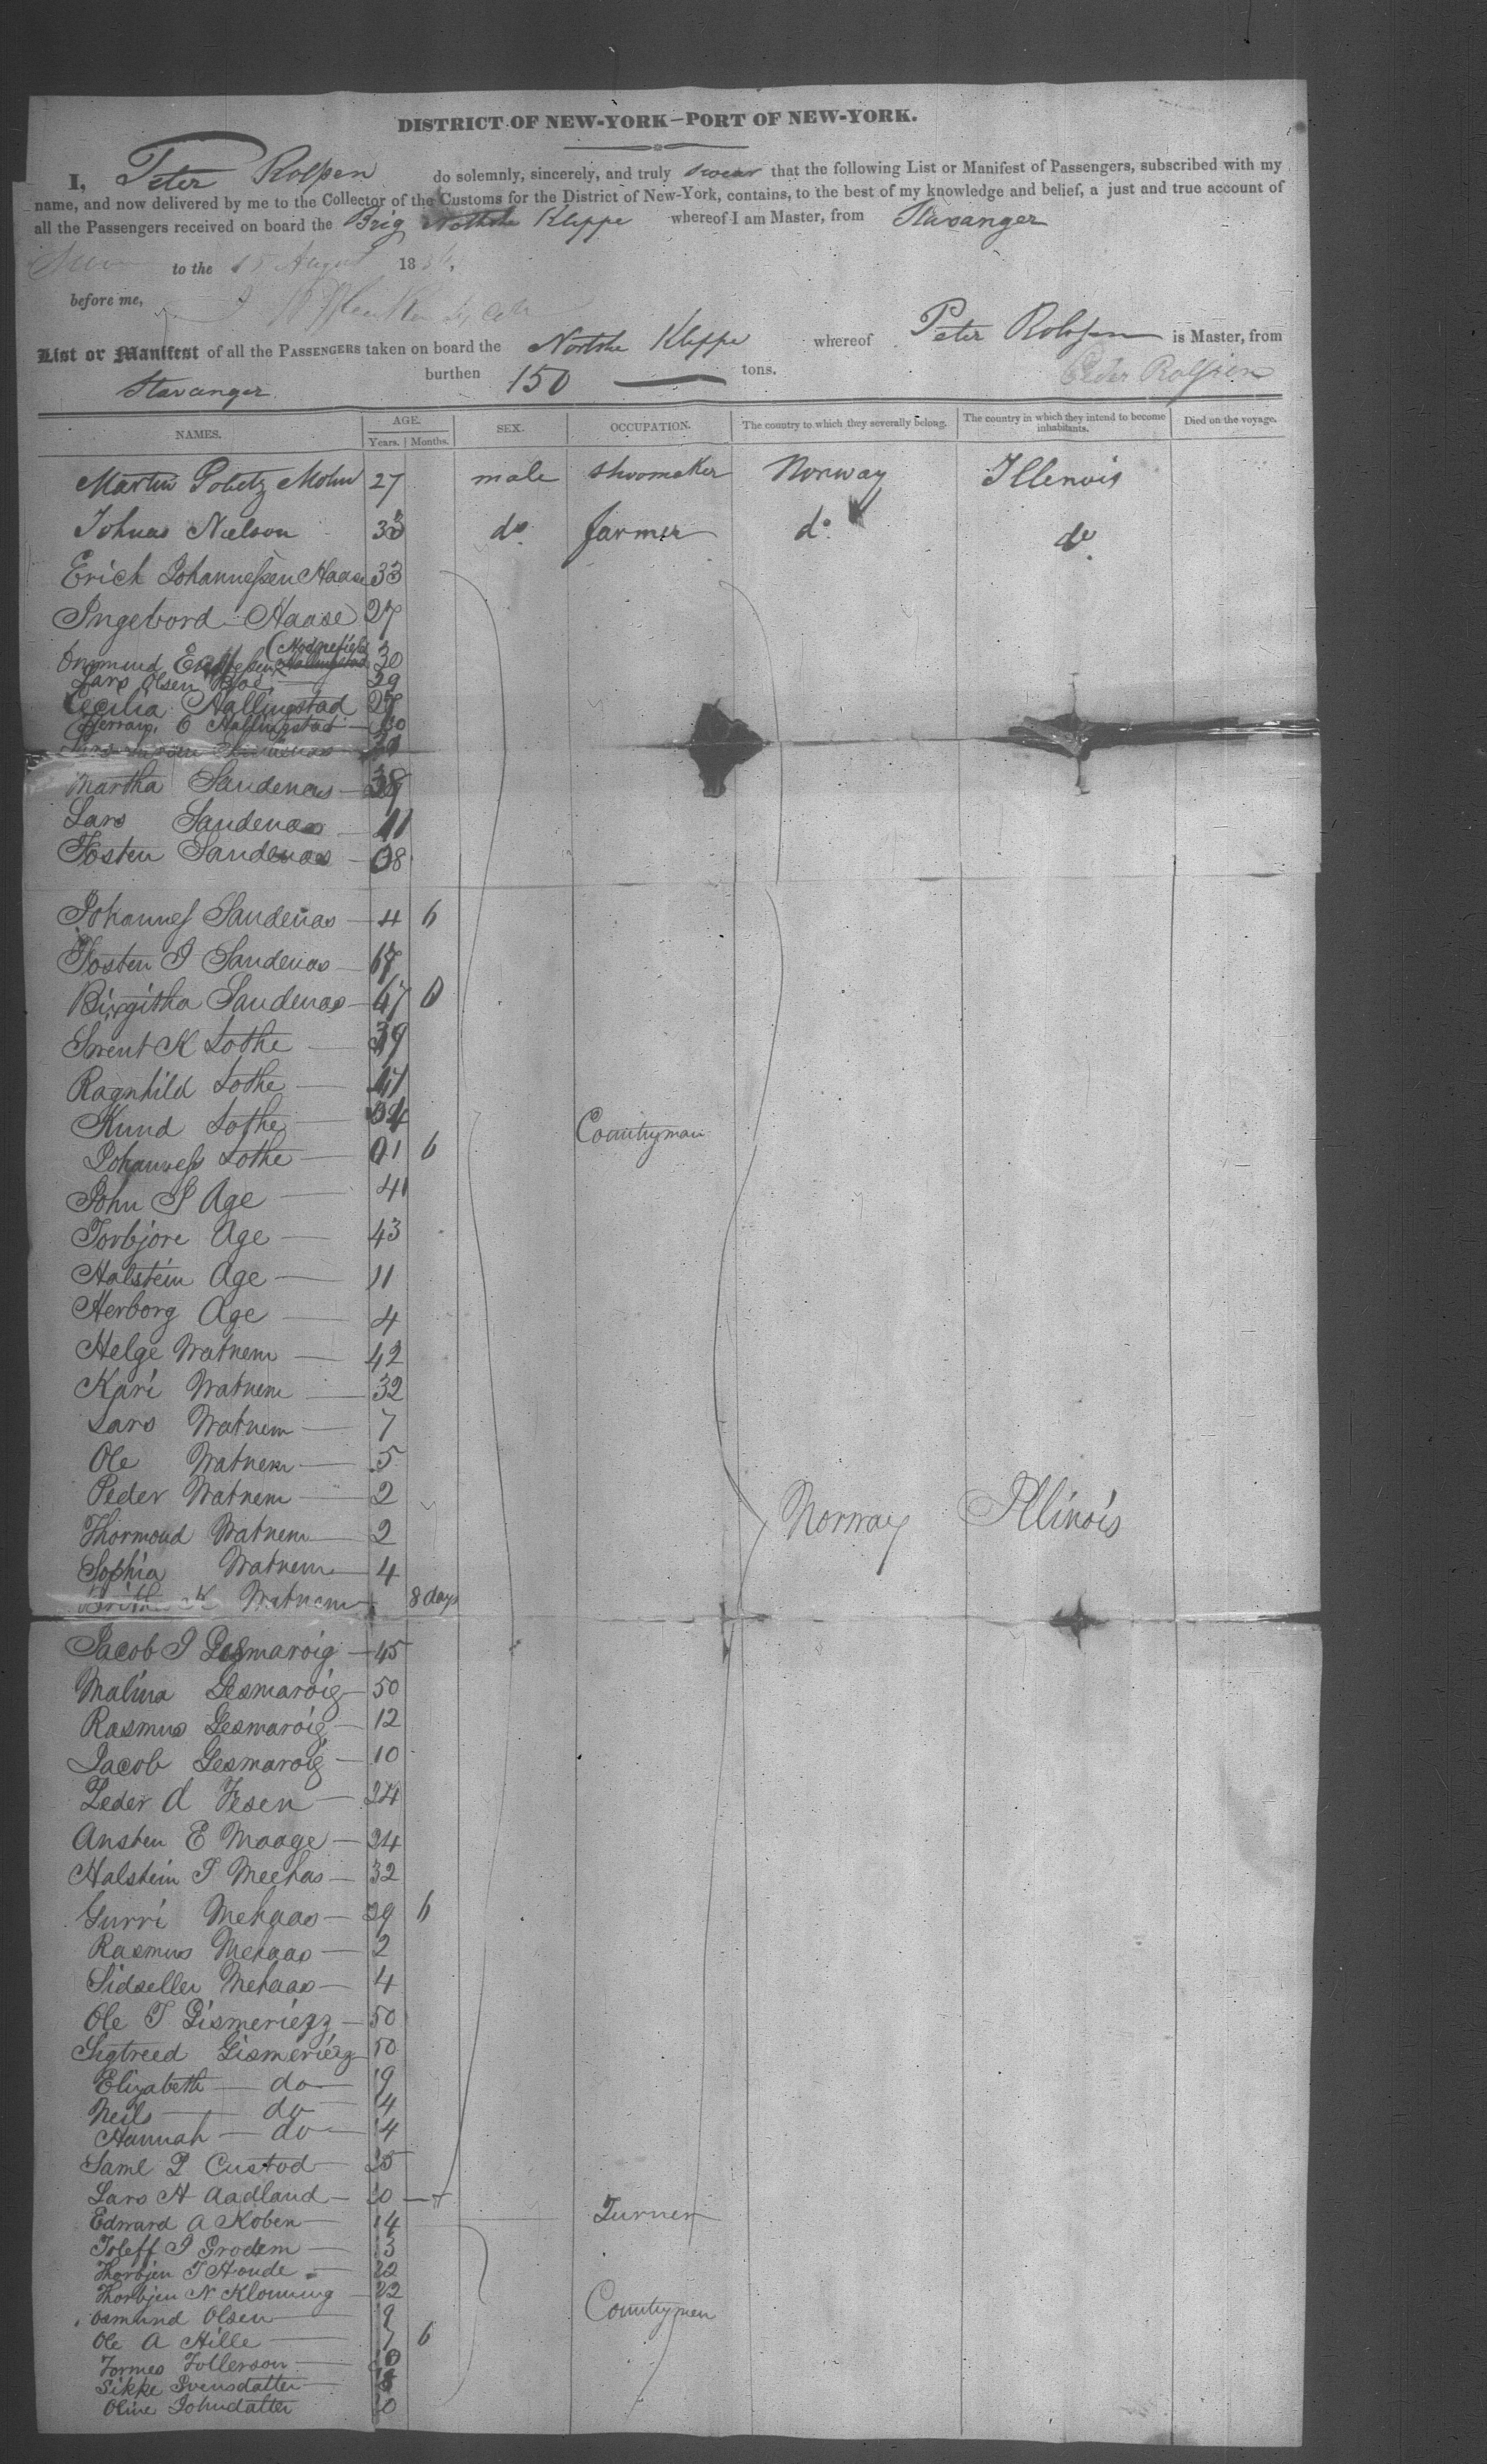 DISTRICT OF NEW-YORK—PORT OF NEW-YORK.
I, Peter Rolfsen do solemnly, sincerely, and truly swear that the following List or Manifest of Passengers, subscribed with my
name, and now delivered by me to the Collector of the Customs for the District of New-York, contains, to the best of my knowledge and belief, a just and true account of
all the Passengers received on board the Brig Norske Kleppe whereof I am Master, from Stavanger
to the 15 August 183
before me,
List or Manifest of all the PASSENGERS taken on board the Norske Kleppe whereof Peter Rolfsen is Master, from
Stavanger burthen 150 tons. Peder Rolfsen
NAMES. AGE. Years. Months. SEX. OCCUPATION. The country to which they severally belong. The country in which they intend to become inhabitants. Died on the voyage.
Martin Mohn 27 male shoomaker Norway Illenois
Johnas Nielson 33 do farmer do do
Erich Johannessen Haase 33
Ingebord Haase 27
(Hodnefield 30
Lars Olsen Boe 29
Cecilia Hallingstad 27
O Hallingstad 30
Martha Sandenas 39
Lars Sandenas 11
Tosten Sandenas 08
Johannes Sandenas 4 6
Tosten I Sandenas
Birgitha Sandenas 47 6
Svent K Lothe 39
Ragnhild Lothe 41
Knud Lothe 04
Johannes Lothe 01 6
Countryman
John S Age 41
Torbjore Age 43
Halstein Age 11
Herborg Age 4
Helge Watnem 42
Kari Watnem 32
Lars Watnem 7
Ole Watnem 5
Peder Watnem 2
Norway Illinois
Thormond Watnem 2
Sophia Watnem 4
Brithe K Watnem 8 days
Jacob I Gesmaroig 45
Malina Gesmaroig 50
Rasmus Gesmaroig 12
Jacob Gesmaroig 10
Peder A Fesen 24
Ansten E Maage 24
Halstein T Meehas 32
Gurri Mehaas 29 6
Rasmus Mehaas 2
Sidseller Mehaas 4
Ole T Gismeriegg 50
Sigtreed Gismeriegg 50
Elizabeth do 19
Neils do 14
Hannah do 14
Saml P Custod 25
Lars H Aadland 20
Edward A Koben 14 Turner
Toleff I Grodem 13
Thorbjen T Honde 22
Thorbjen N Klonning 22
Osmund Olsen 19 Countrymen
Ole A Hille 7 6
Tormes Tollerson
Sikke Svensdatter 18
Oline Johndatter